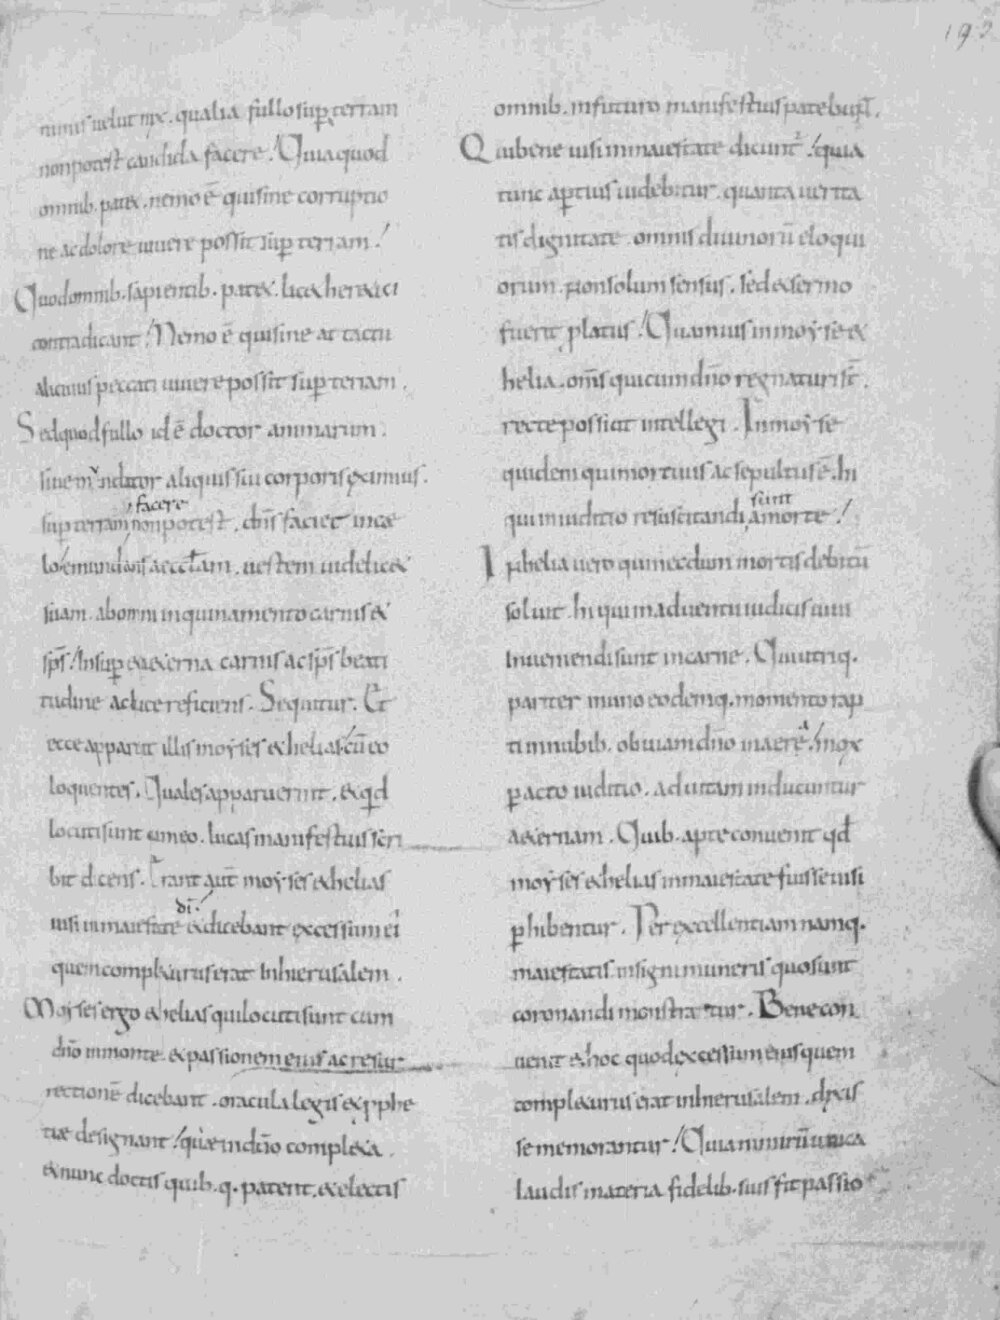 192
nimis uelut nix. qualia fullo sup terram
non potest candida facere. Quia quod
omnib. patet. nemo ē qui sine corruptio
ne ac dolore uiuere possit sup terram.
Quod omnib. sapientib. patet. licet heretici
contradicant. Nemo ē qui sine at tactu
alicuius peccati uiuere possit sup terram.
Sed quod fullo id ē doctor animarum.
siue mundator aliquis sui corporis eximius.
facere
sup terram non potest. dns faciet in cæ
lo emundans aecctam. uestem uidelicet
suam. ab omni inquinamento carnis et
sps. Insup et aeterna carnis ac sps beati
tudine ac luce reficiens. Sequitur. Et
ecce apparuit illis moyses et helias cū eo
loquentes. Quales apparuerint. et qd
locuti sunt cum eo. lucas manifestius scri
bit dicens. Erant aut moyses et helias
di.
uisi in maiestate et dicebant excessum ei
quem completurus erat In hierusalem.
Moyses ergo et helias qui locuti sunt cum
dño in monte. et passionem eius ac resur
rectionē dicebant. oracula legis et pphe
tiæ designant quæ in dño completa.
et nunc doctis quib. q. patent. et electis
omnib. in futuro manifestius patebunt.
Qui bene uisi in maiestate dicunt. quia
tunc aptius uidebitur. quanta uerita
tis dignitate. omnis diuinorū eloqui
orum. non solum sensus. sed et sermo
fuerit platus. Quamuis in moyse et
helia. oms qui cum dño regnaturi st.
recte possint intellegi. In moyse
quidem qui mortuus ac sepultus ē. hi
sunt
qui in iuditio resuscitandi a morte.
In helia uero qui necdum mortis debitū
soluit. hi qui in aduentu iudicis uiui
Inueniendi sunt in carne. Qui utriq.
pariter in uno eodemq. momento rap
ti in nubib. obuiam dño in aere. mox
pacto iuditio. ad uitam inducuntur
aeternam. Quib. apte conuenit qd
moyses et helias in maiestate fuisse uisi
phibentur. Per excellentiam namq.
maiestatis insigni muneris quo sunt
coronandi monstratur. Bene con
uenit et hoc quod excessum eius quem
completurus erat in hierusalem. dixis
se memorantur. Quia nimirū unica
laudis materia fidelib. suis fit passio